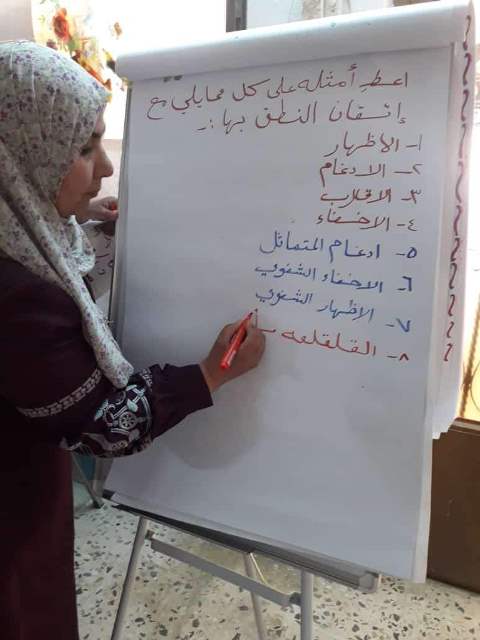 اعط أمثله على كل مما يلي مع
إتقان النطق بها :-
١- الاظهار
٢- الادغام
٣- الاقلاب
٤- الاخفاء
٥- ادغام المتماثل
٦- الاخفاء الشفوي
٧- الاظهار الشفوي
٨- القلقله